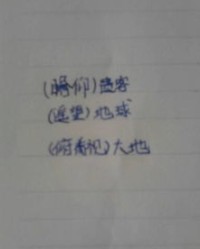 (瞻仰)遗容
(遥望)地球
(俯视)大地